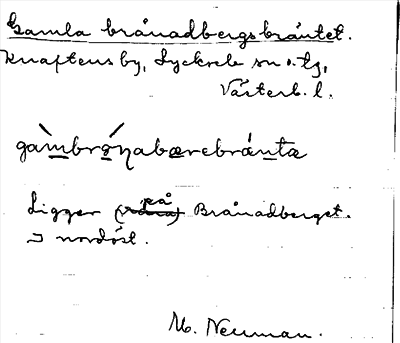 Gamla brånadbergsbräntet.
Knaftens by, Lycksele sn o. tg,
Västerb. l.
gàmbrǿnabærebräntæ
Ligger på Brånadberget.
I nordöst.
M. Neuman.